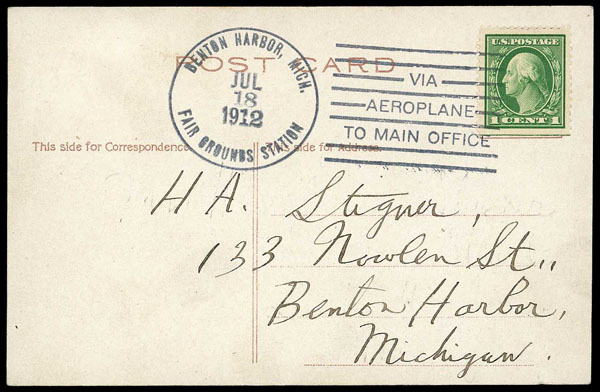 POST CARD
BENTON HARBOR, MICH.
JUL
18
1912
FAIR GROUNDS STATION
VIA
AEROPLANE
TO MAIN OFFICE
U.S. POSTAGE
1 CENT 1
This side for Correspondence
This side for Address.
H A. Stegner,
133 Nowlen St.,
Benton Harbor,
Michigan.